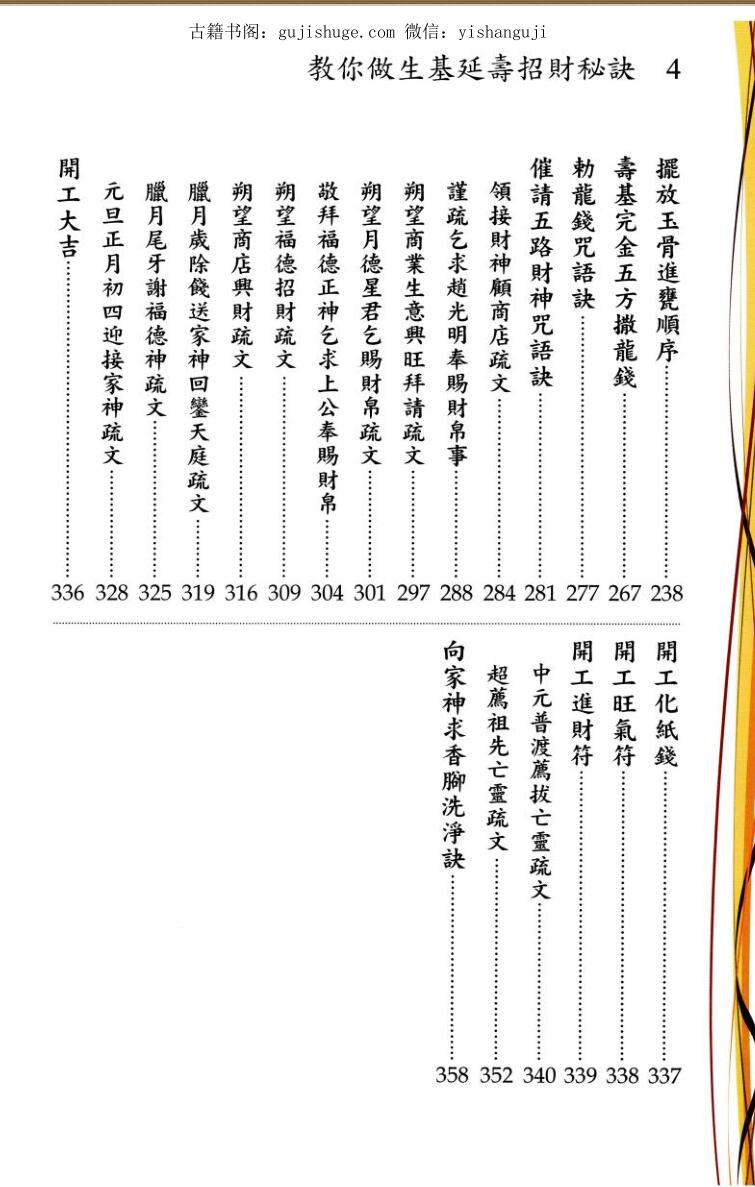 古籍书阁：gujishuge.com 微信：yishanguji
教你做生基延壽招財秘訣 4
擺放玉骨進甕順序…………238
壽基完金五方撒龍錢…………267
勅龍錢咒語訣…………277
催請五路財神咒語訣…………281
領接財神顧商店疏文…………284
謹疏乞求趙光明奉賜財帛事…………288
朔望商業生意興旺拜請疏文…………297
朔望月德星君乞賜財帛疏文…………301
敬拜福德正神乞求上公奉賜財帛…………304
朔望福德招財疏文…………309
朔望商店興財疏文…………316
臘月歲除餞送家神回鑾天庭疏文…………319
臘月尾牙謝福德神疏文…………325
元旦正月初四迎接家神疏文…………328
開工大吉…………336
開工化紙錢…………337
開工旺氣符…………338
開工進財符…………339
中元普渡薦拔亡靈疏文…………340
超薦祖先亡靈疏文…………352
向家神求香腳洗淨訣…………358